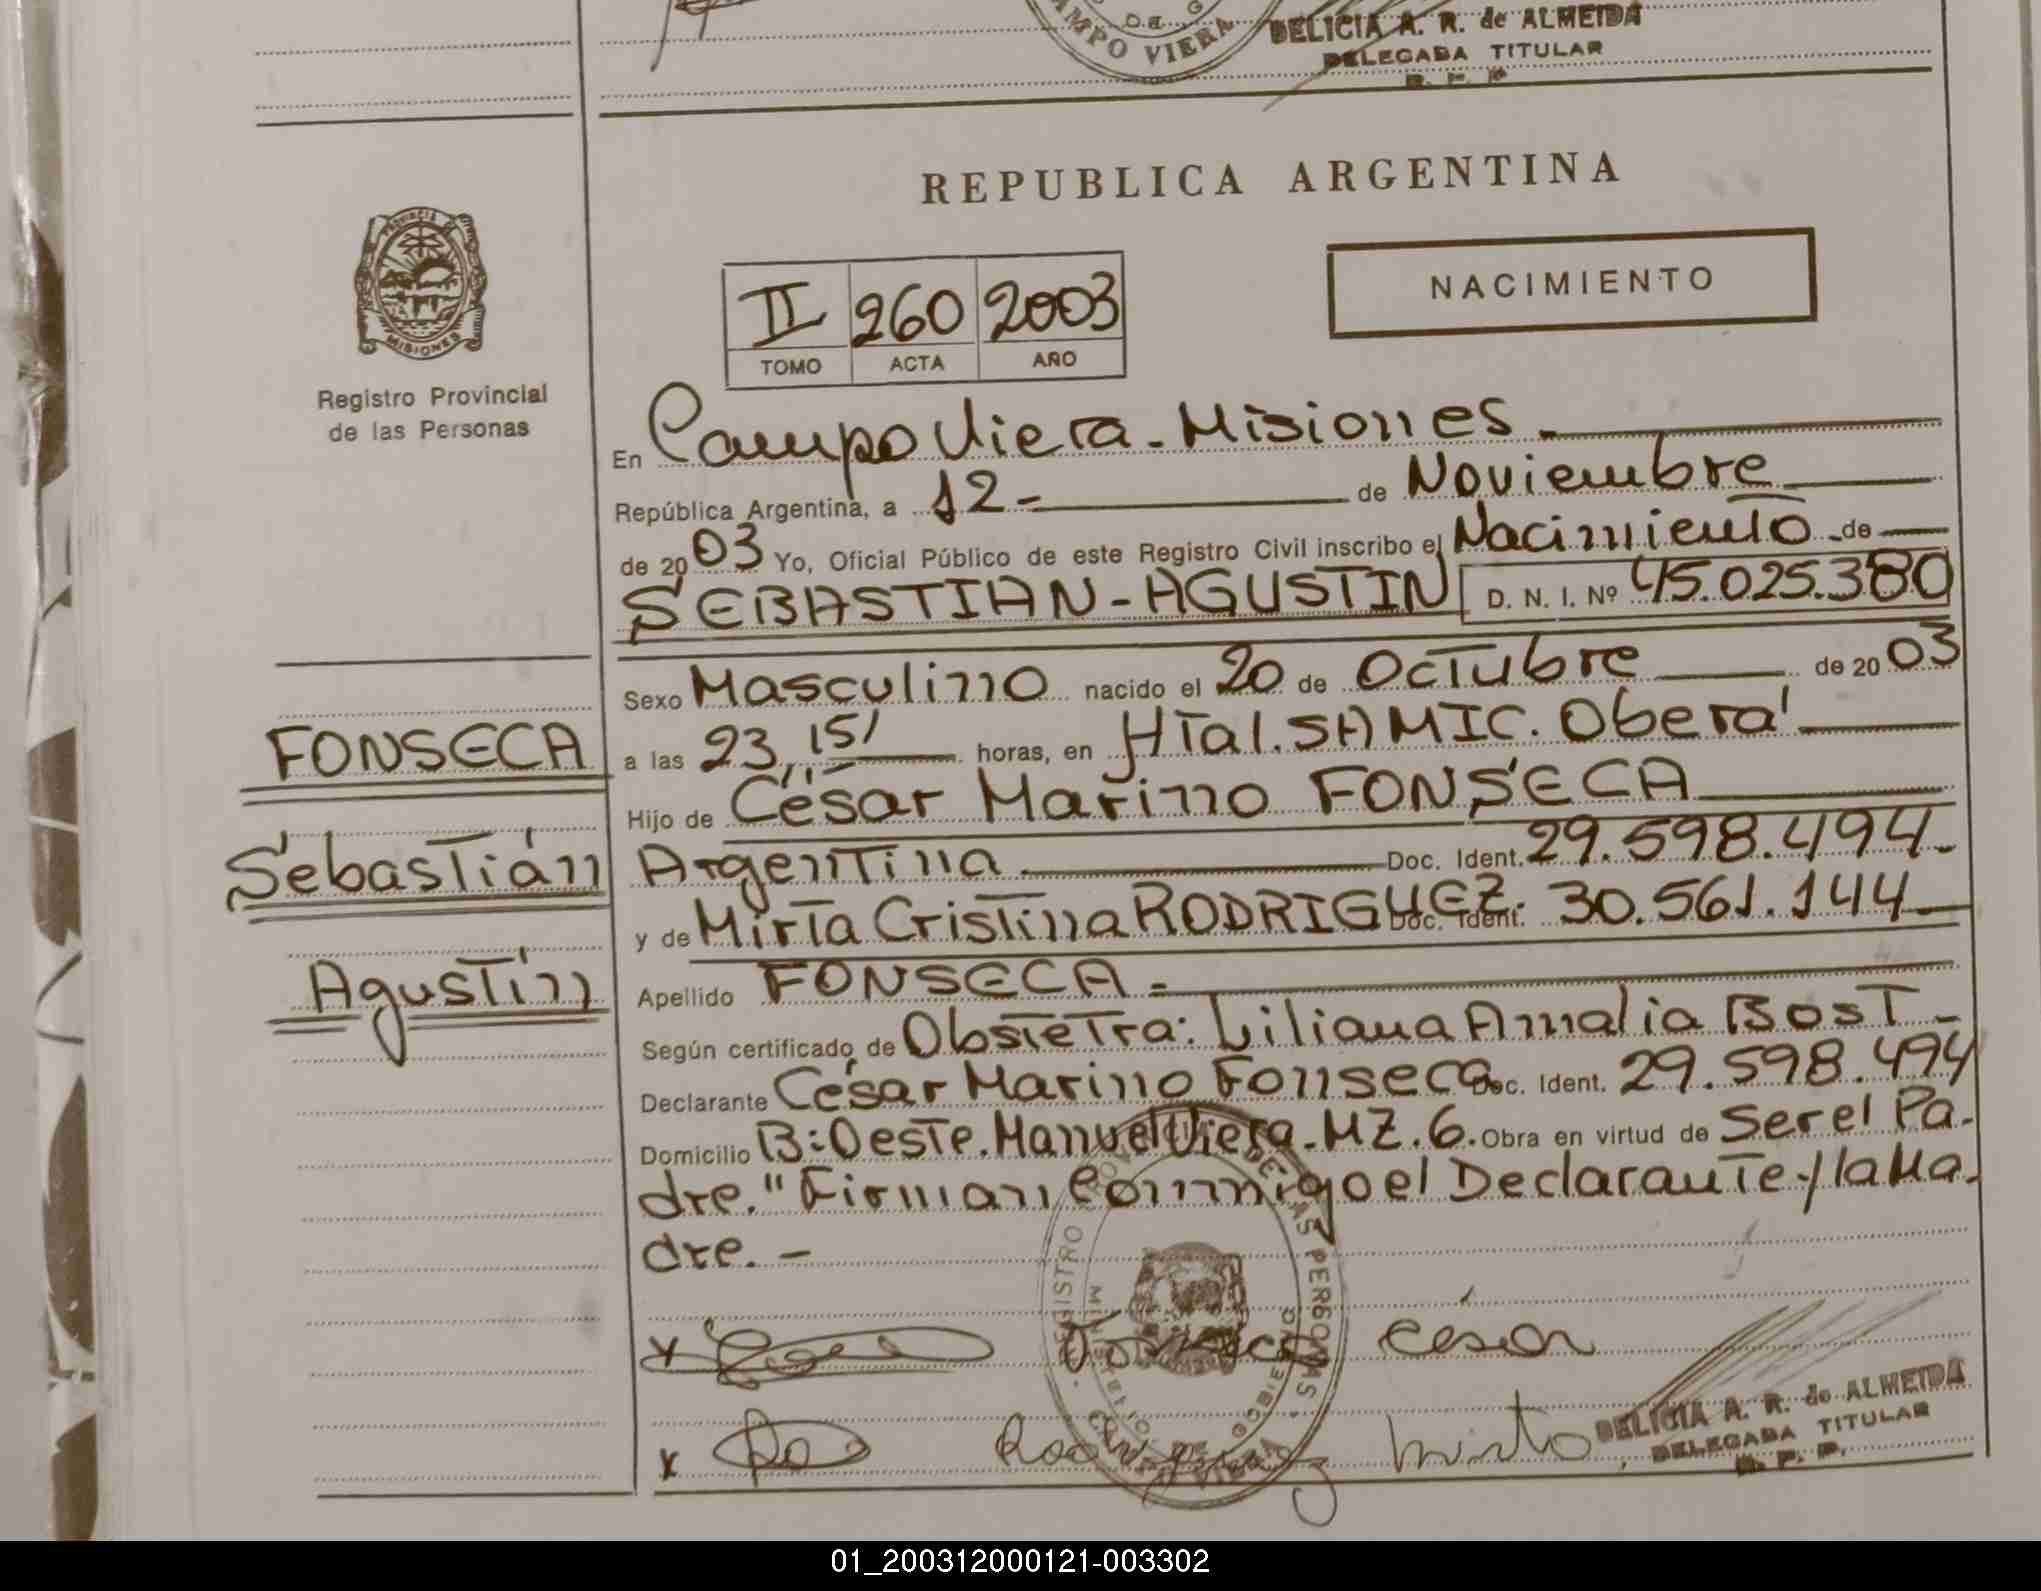 CAMPO VIERA
DELICIA A. R. de ALMEIDA
DELEGADA TITULAR
R. P. P.
REPUBLICA ARGENTINA
PROVINCIA DE
MISIONES
Registro Provincial
de las Personas
II 260 2003
TOMO ACTA AÑO
NACIMIENTO
En Campo Viera - Misiones -
República Argentina, a 12 - de Noviembre
de 2003 Yo, Oficial Público de este Registro Civil inscribo el Nacimiento de
SEBASTIAN - AGUSTIN D. N. I. Nº 45.025.380
Sexo Masculino nacido el 20 de Octubre de 2003
FONSECA
a las 23,15' horas, en Htal. SAMIC. Oberá
Hijo de César Marino FONSECA
Sebastián
Argentina Doc. Ident. 29.598.494-
y de Mirta Cristina RODRIGUEZ. Doc. Ident. 30.561.144
Agustín
Apellido FONSECA -
Según certificado de Obstetra: Liliana Amalia Bost -
Declarante César Marino Fonseca Doc. Ident. 29.598.494
Domicilio B: Oeste. Manuel Viera - MZ. 6. Obra en virtud de Ser el Pa-
dre." Firman Conmigo el Declarante y la Ma-
dre. -
REGISTRO PROV. DE LAS PERSONAS
x Fonseca César
x Rodriguez Mirta
DELICIA A. R. de ALMEIDA
DELEGADA TITULAR
R. P. P.
01_200312000121-003302